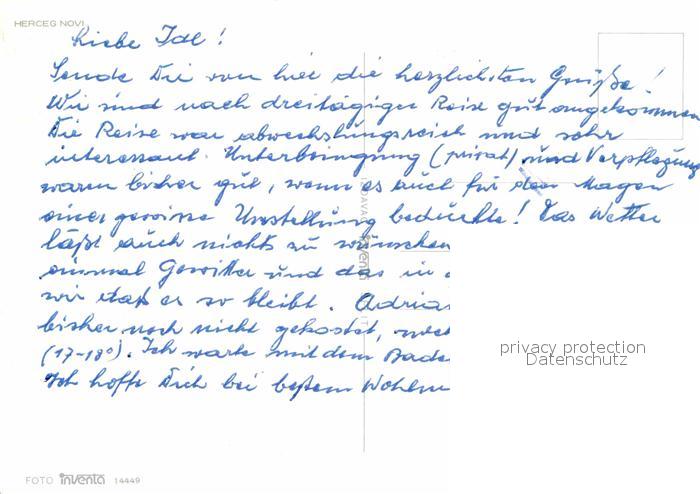 HERCEG NOVI
Liebe Ide!
Sende Dir von hier die herzlichsten Grüße!
Wir sind nach dreitägiger Reise gut angekommen
Die Reise war abwechslungsreich und sehr
interessant. Unterbringung (privat) und Verpflegung
waren bisher gut, wenn es auch für den Magen
einer gewissen Umstellung bedürfte! Das Wetter
läßt auch nichts zu wünschen
einmal Gewitter und das in
wir daß es so bleibt. Adria
bisher noch nicht gekostet,
(17-18°). Ich warte mit dem Bade
Ich hoffe Dich bei bestem Wohl
privacy protection
Datenschutz
FOTO inventa 14449